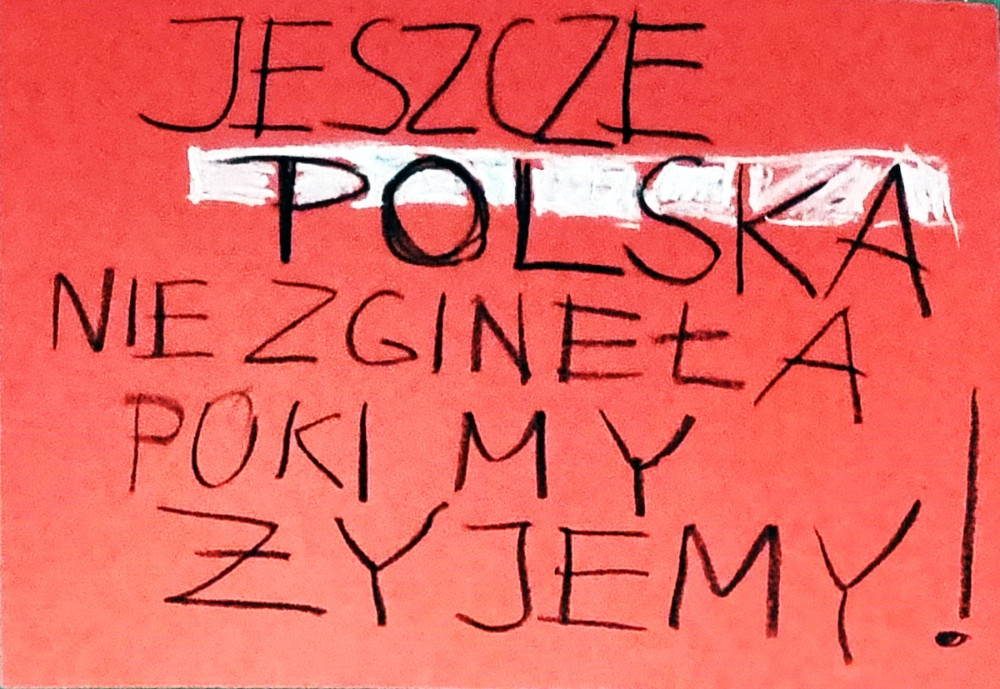 JESZCZE
POLSKA
NIE ZGINEŁA
POKI MY
ƵYJEMY!